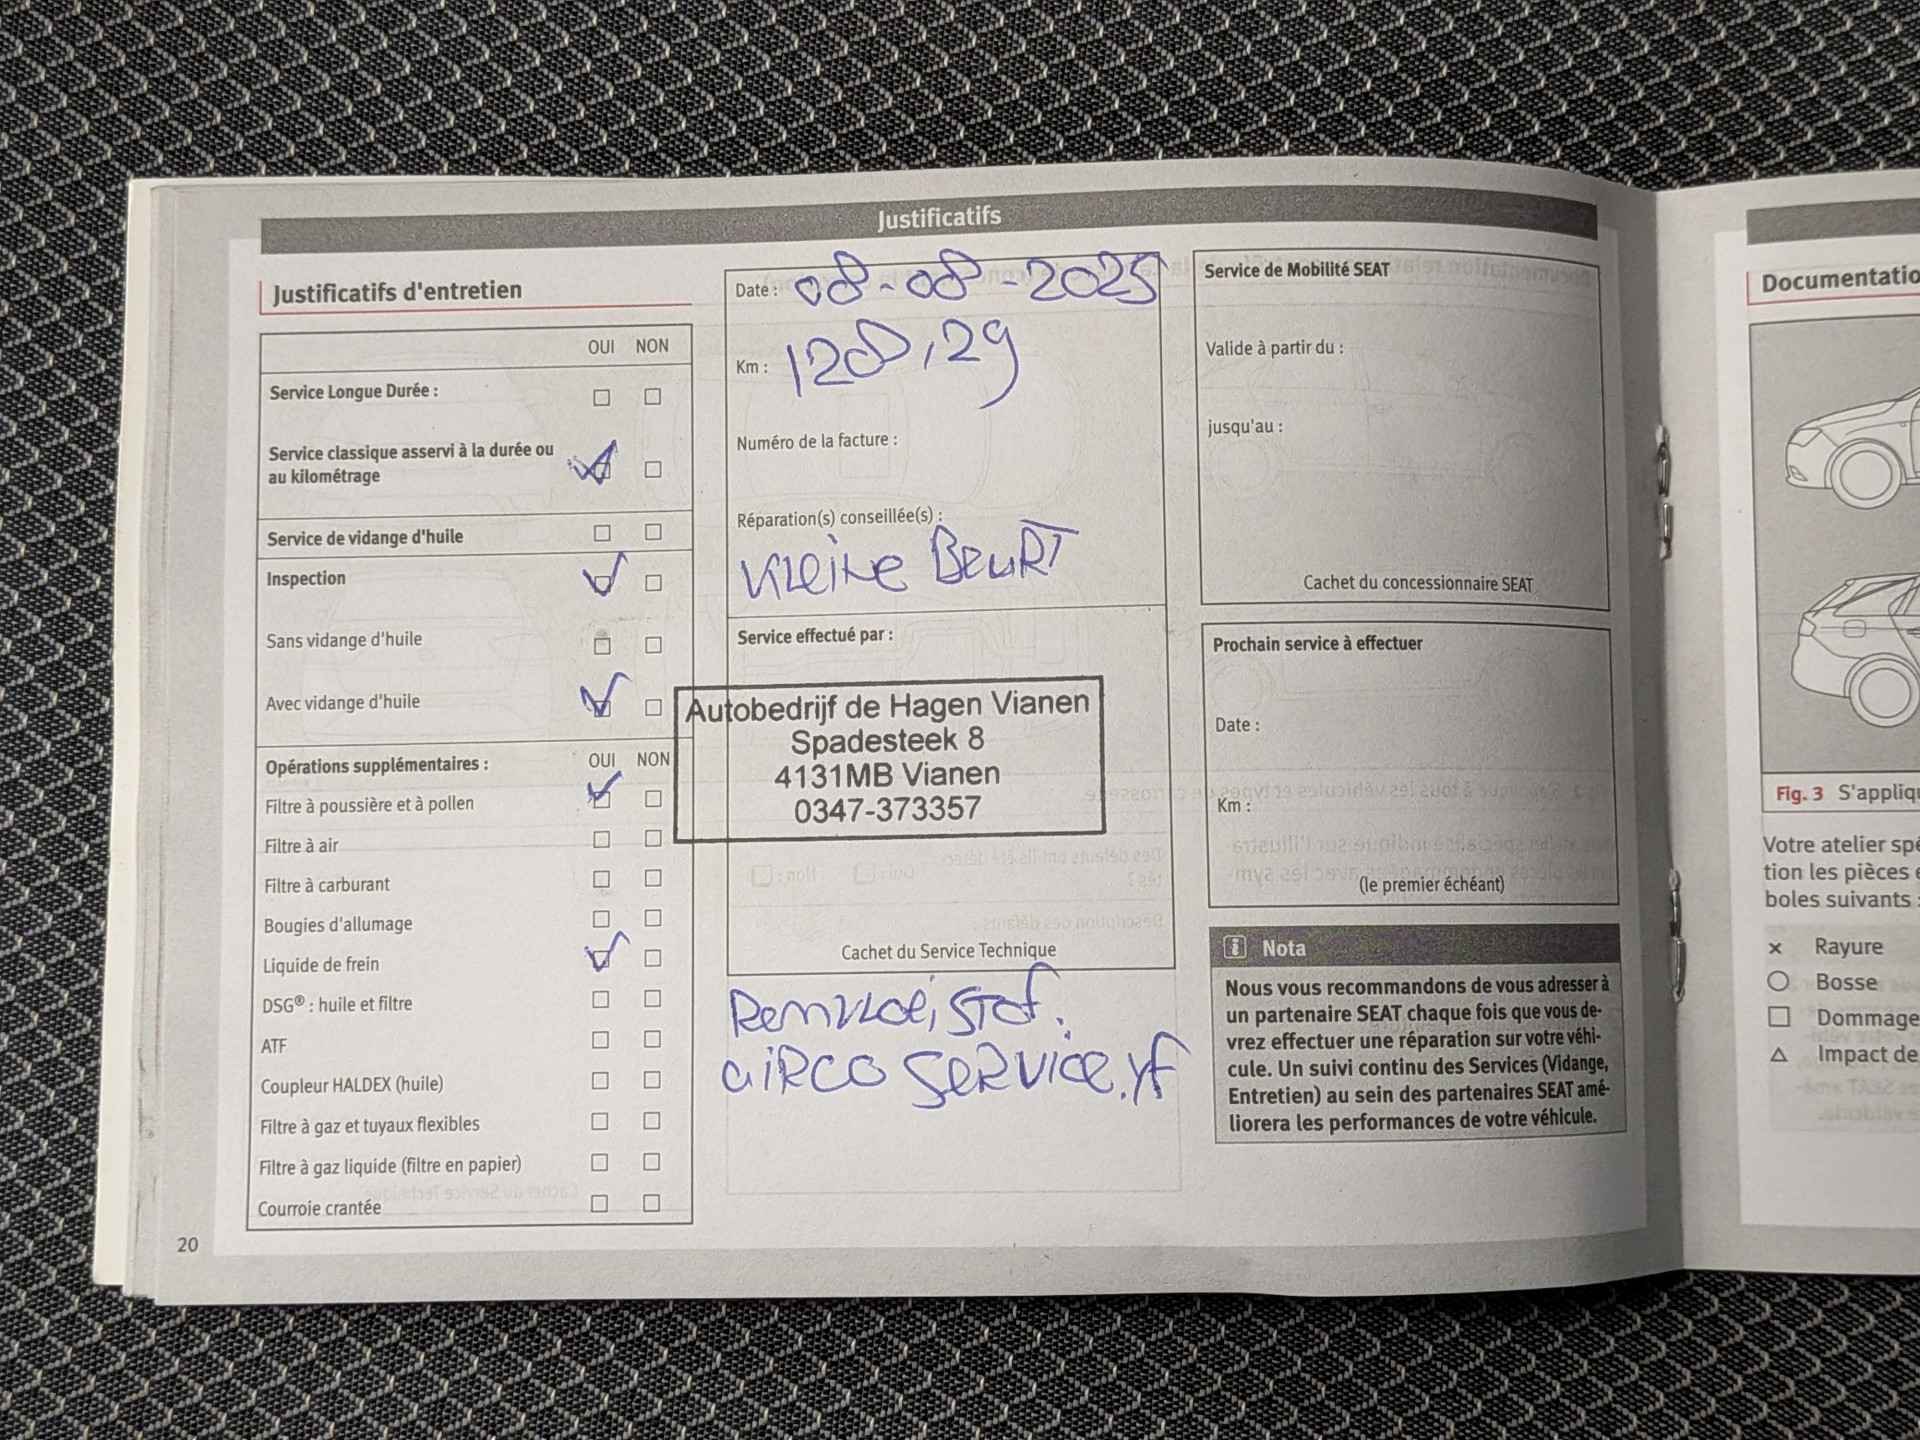 Justificatifs
Justificatifs d'entretien
OUI NON
Service Longue Durée :
Service classique asservi à la durée ou
au kilométrage
Service de vidange d'huile
Inspection
Sans vidange d'huile
Avec vidange d'huile
Opérations supplémentaires : OUI NON
Filtre à poussière et à pollen
Filtre à air
Filtre à carburant
Bougies d'allumage
Liquide de frein
DSG® : huile et filtre
ATF
Coupleur HALDEX (huile)
Filtre à gaz et tuyaux flexibles
Filtre à gaz liquide (filtre en papier)
Courroie crantée
20
Date : 08-08-2025
Km : 128,29
Numéro de la facture :
Réparation(s) conseillée(s) :
Kleine Beurt
Service effectué par :
Autobedrijf de Hagen Vianen
Spadesteek 8
4131MB Vianen
0347-373357
Cachet du Service Technique
Remvloeistof.
airco service.yf
Service de Mobilité SEAT
Valide à partir du :
jusqu'au :
Cachet du concessionnaire SEAT
Prochain service à effectuer
Date :
Km :
(le premier échéant)
i Nota
Nous vous recommandons de vous adresser à
un partenaire SEAT chaque fois que vous de-
vrez effectuer une réparation sur votre véhi-
cule. Un suivi continu des Services (Vidange,
Entretien) au sein des partenaires SEAT amé-
liorera les performances de votre véhicule.
Documentatio
Fig. 3 S'appliqu
Votre atelier spé
tion les pièces e
boles suivants :
× Rayure
○ Bosse
□ Dommage
△ Impact de